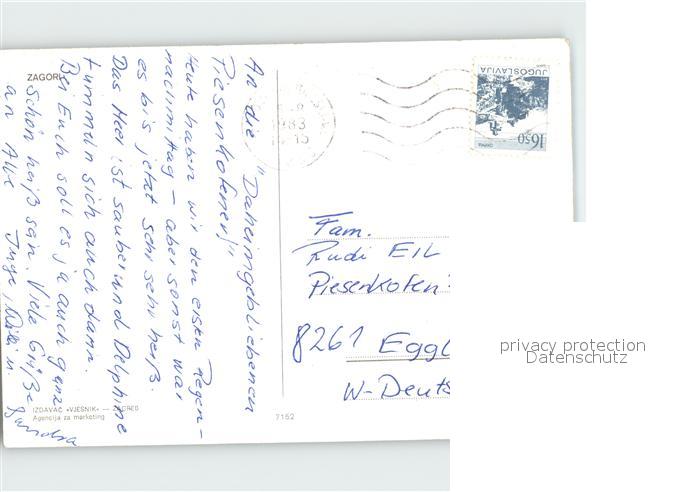 ZAGORI
An die "Daheimgebliebenen
Piesenkofener!"
Heute haben wir den ersten Regen-
nachmittag - aber sonst war
es bis jetzt sehr sehr heiß.
Das Meer ist sauber und Delphine
tummeln sich auch darin.
Bei Euch soll es ja auch ganz
schön heiß sein. Viele Grüße
an Alle Inge, Willi u. Sandra
IZDAVAČ »VJESNIK« — ZAGREB
Agencija za marketing
7152
1983
JUGOSLAVIJA
16.50
OHRID
Fam.
Rudi EIL
Piesenkofen
8261 Eggl
W-Deuts
privacy protection
Datenschutz